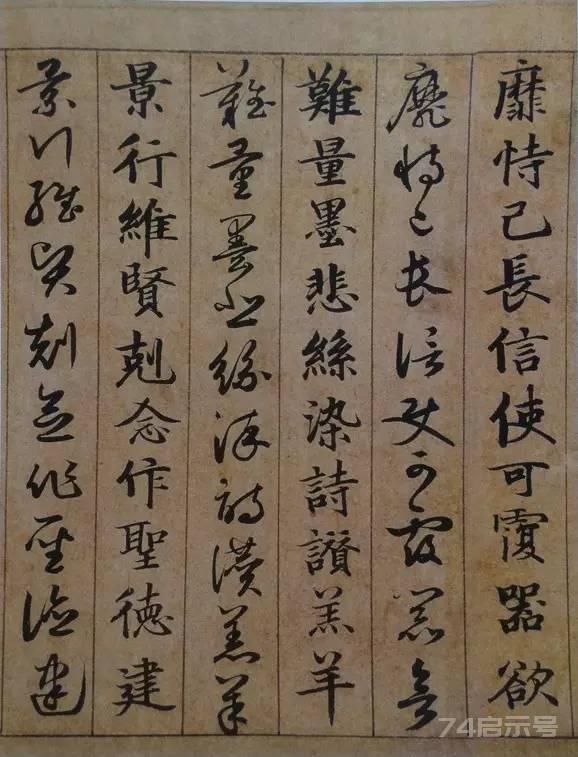 靡恃己長信使可覆器欲
靡恃己長信使可覆器欲
難量墨悲絲染詩讚羔羊
難量墨悲絲染詩讚羔羊
景行維賢剋念作聖德建
景行維賢剋念作聖德建
74启示号